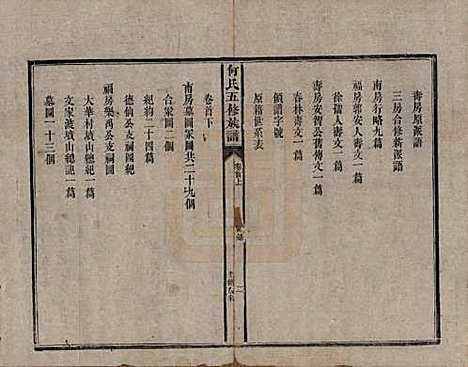 壽房原派語
三房合修新派語
南房行略九篇
福房郭安人壽文一篇
徐孺人壽文一篇
壽房安智公舊傳文一篇
春林壽文一篇
領譜字號
原籍世系表
何氏五修族譜
卷首上
二
卷首下
南房墓圖冢圖共二十九個
合冢圖二個
紀約二十四篇
德仙公支祠圖紀
福房樂禹公支祠圖
大華村墳山總紀一篇
文家灘墳山總記一篇
墓圖一十三個